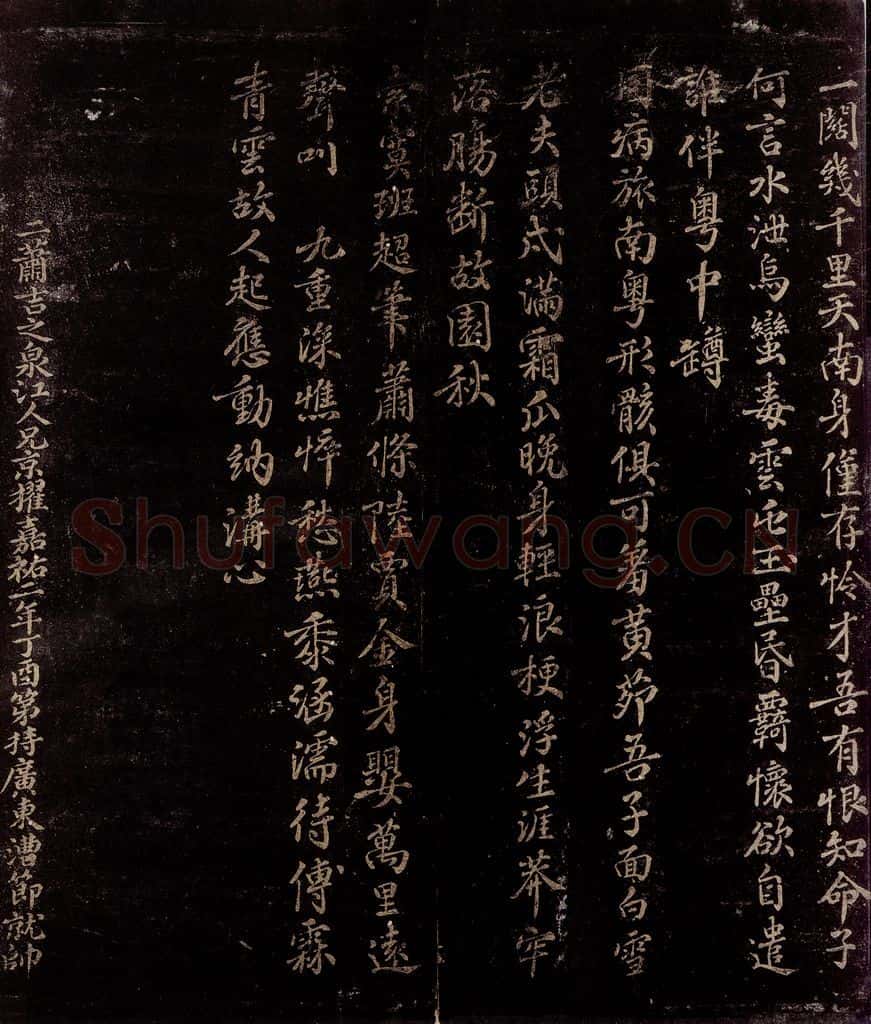 一闊幾千里天南身僅存怜才吾有恨知命子
何言水泄烏蠻毒雲屯玉壘昏羇懷欲自遣
誰伴粵中罇
同病旅南粵形骸俱可畨黃茆吾子面白雪
老夫頭戍滿霜瓜晚身輕浪梗浮生涯莽牢
落腸断故園秋
索寞班超筆蕭條陸賈金身嬰萬里遠
聲叫 九重深憔悴愁燕黍涵濡待傅霖
青雲故人起應動納溝心
二蕭吉之泉江人兄京擢嘉祐二年丁酉第持廣東漕節就帥
Shufawang.CN